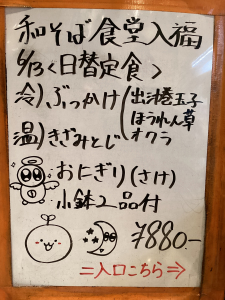 和そば食堂入福
6/13<日替定食>
冷)ぶっかけ(出汁巻玉子
ほうれん草
温)きざみとじ オクラ
おにぎり(さけ)
小鉢2品付
¥880-
入口こちら⇒